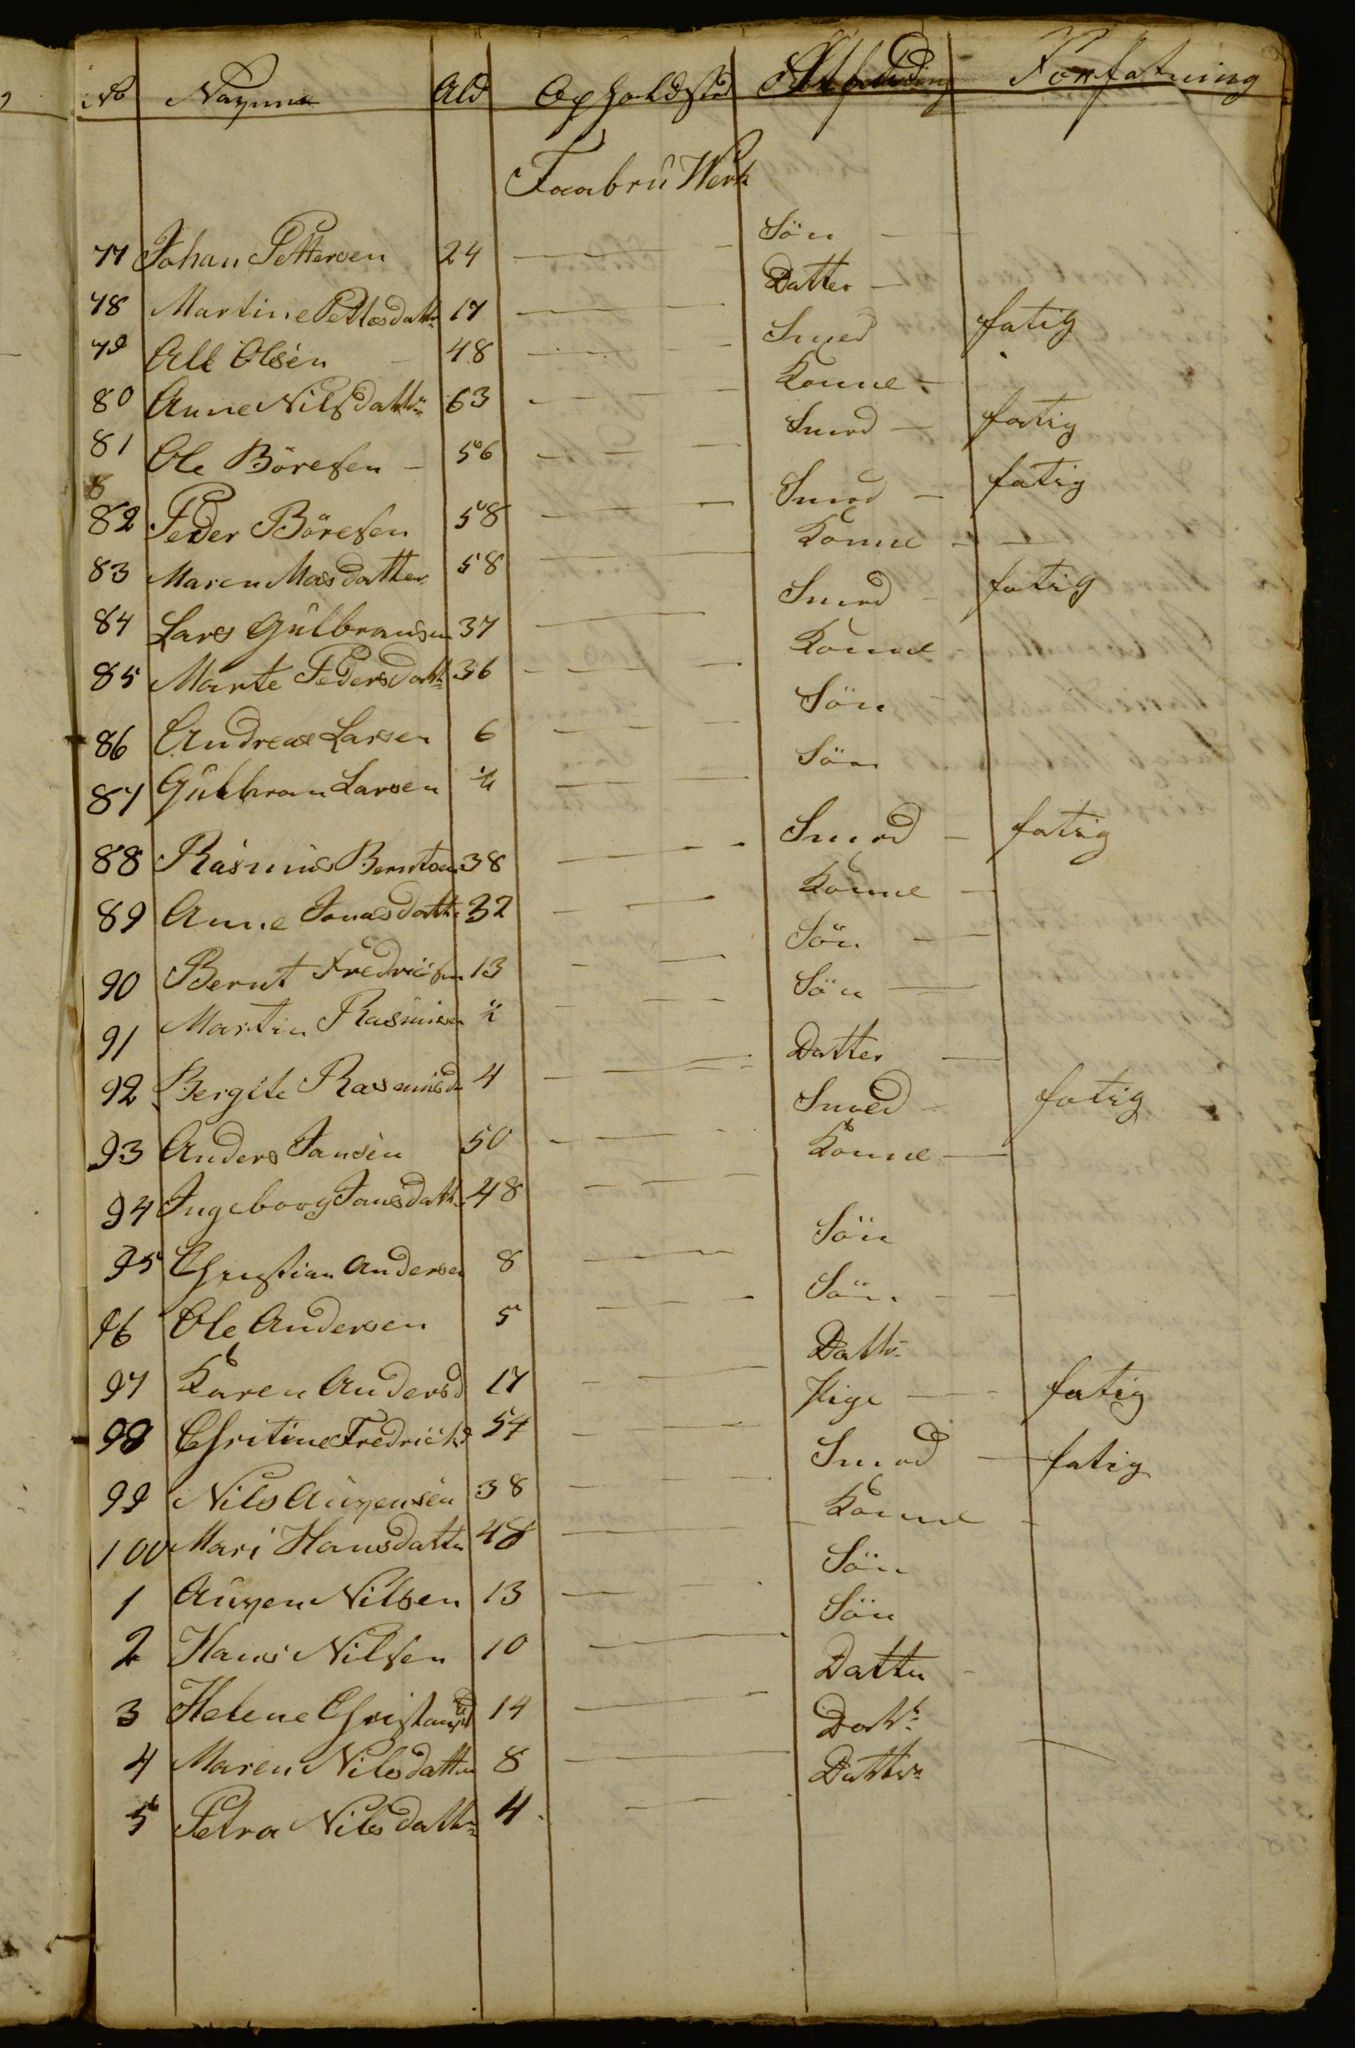 No Naÿnne Ald Opholdsted Forfatning
Faabrü Werk
77 Johan Pettersen 24 — — Sön —
78 Martine Pettesdattr 17 — — Datter —
79 Ole Olsen — 48 — — Smed fatig
80 Anne Nilsdatter 63 — — Konne —
81 Ole Böresen — 56 — — Smed — fatig
8
82 Peder Böresen 58 — — Smed — fatig
83 Maren Masdatter 58 — — Konne — —
84 Lars Gülbransen 37 — — Smed — fatig
85 Marte Pedersdatt 36 — — Konne
86 Andreas Larsen 6 — — Sön
87 Gülbran Larsen ½ — — Sön
88 Rasmus Berntsen 38 — — Smed — fatig
89 Anne Jonasdatt 32 — — Konne —
90 Bernt Fredriksen 13 — — Sön —
91 Martin Rasmusen ½ — — Sön —
92 Bergite Rasmusd 4 — — Datter —
93 Anders Jansen 50 — — Smed — fatig
94 Ingeborg Jansdatt 48 — — Konne —
95 Christian Andersen 8 — — Sön
96 Ole Andersen 5 — — Sön —
97 Karen Andersd 17 — — Dattr
98 Chritine Fredrichsd 54 — — Pige — fatig
99 Nils Auÿensen 38 — — Smed — fatig
100 Mari Hansdatter 48 — — Konne —
1 Auÿen Nilsen 13 — — Sön
2 Hans Nilsen 10 — — Sön
3 Helene Christansd 14 — — Datter —
4 Maren Nilsdatter 8 — — Dattr
5 Petra Nilsdatter 4 — — Datter